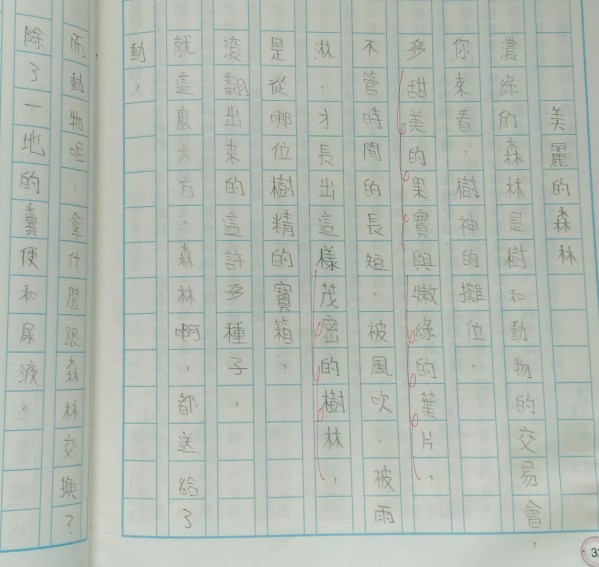 美麗的森林
濃綠的森林是樹和動物的交易會，
你來看，樹神的攤位，
多甜美的果實與嫩綠的葉片，
不管時間的長短，被風吹，被雨
淋，才長出這樣茂密的樹林，
是從哪位樹精的寶箱，
滾翻出來的這許多種子，
就這麼大方。森林啊，都送給了
動，
而動物呢，拿什麼跟森林交換？
除了一地的糞便和尿液。